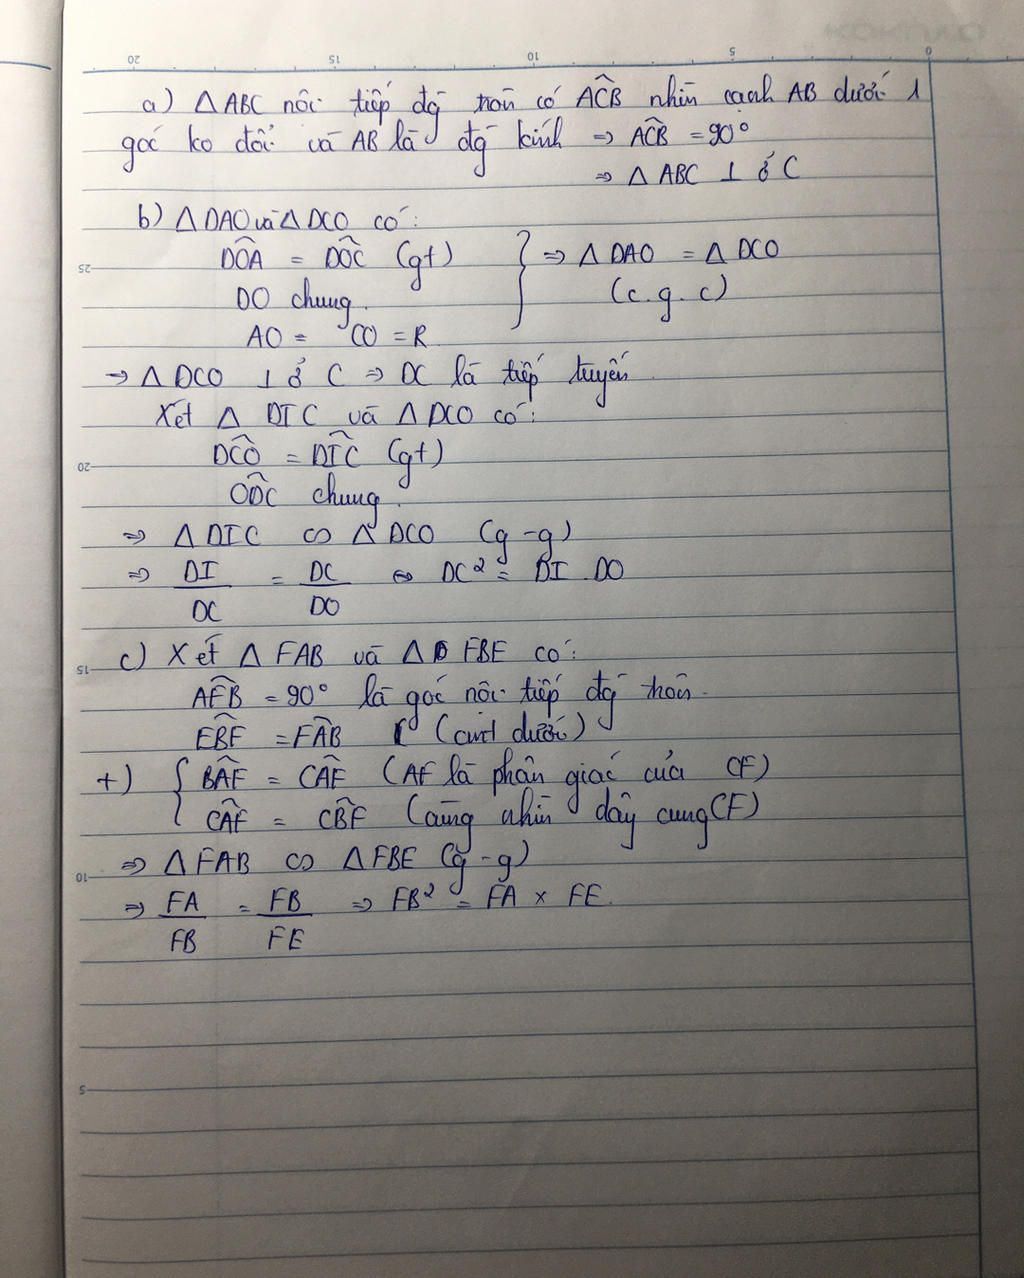 a) Δ ABC nội tiếp đg tròn có ACB̂ nhìn cạnh AB dưới 1
góc ko đổi và AB là đg kính ⇒ ACB̂ = 90°
⇒ Δ ABC ⊥ ở C
b) Δ DAO và Δ DCO có:
DOÂ = DOĈ (gt)
DO chung.
AO = CO = R
} ⇒ Δ DAO = Δ DCO
(c.g.c)
⇒ Δ DCO ⊥ ở C ⇒ DC là tiếp tuyến.
Xét Δ DIC và Δ DCO có:
DCÔ = DIĈ (gt)
ODĈ chung.
⇒ Δ DIC ∽ Δ DCO (g-g)
⇒ DI/DC = DC/DO ⇔ DC² = DI . DO
c) Xét Δ FAB và Δ FBE có:
AFB̂ = 90° là góc nội tiếp đg tròn.
EBF̂ = FAB̂ (cmt dưới)
+) { BAF̂ = CAF̂ (AF là phân giác của CF)
CAF̂ = CBF̂ (cùng nhìn dây cung CF)
⇒ Δ FAB ∽ Δ FBE (g-g)
⇒ FA/FB = FB/FE ⇒ FB² = FA × FE.
20 15 10 5 0
25
20
15
10
5